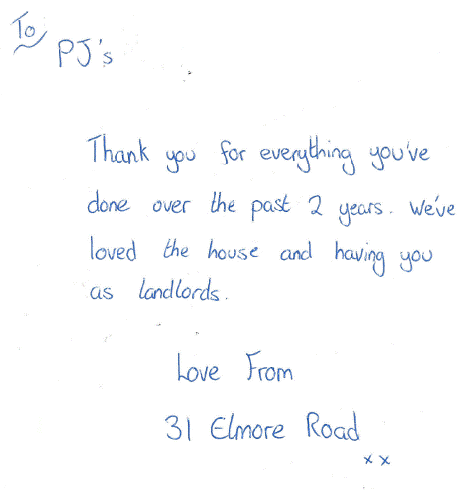 To
PJ's
Thank you for everything you've
done over the past 2 years. We've
loved the house and having you
as landlords.
Love From
31 Elmore Road
x x